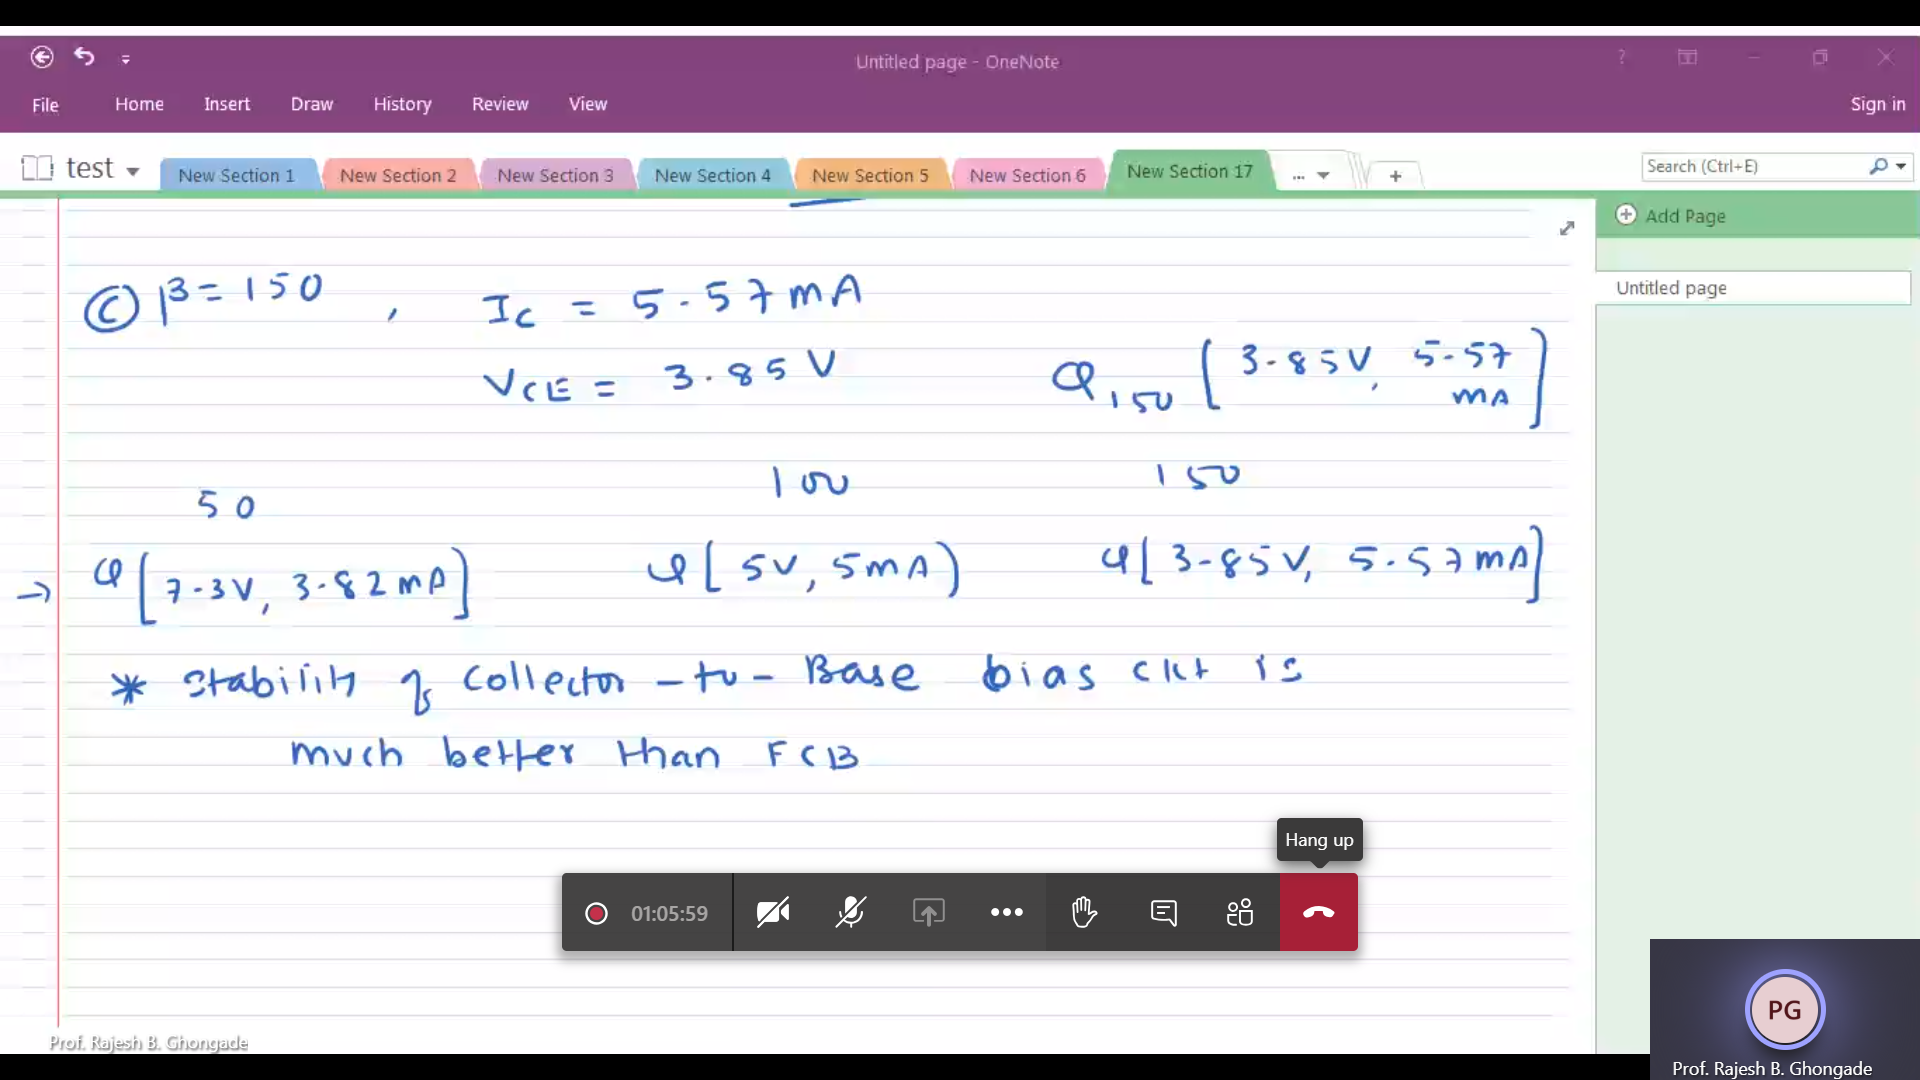 Untitled page - OneNote
?
File Home Insert Draw History Review View Sign in
test New Section 1 New Section 2 New Section 3 New Section 4 New Section 5 New Section 6 New Section 17 ... + Search (Ctrl+E)
Add Page
Untitled page
(C) β = 150 , IC = 5.57 mA
VCE = 3.85 V
Q150 [3.85V, 5.57 mA]
50 100 150
→ Q [7.3V, 3.82 mA] Q [5V, 5mA) Q [3.85V, 5.57mA]
* Stability of Collector-to-Base bias ckt is
much better than FCB
Hang up
01:05:59
PG
Prof. Rajesh B. Ghongade
Prof. Rajesh B. Ghongade